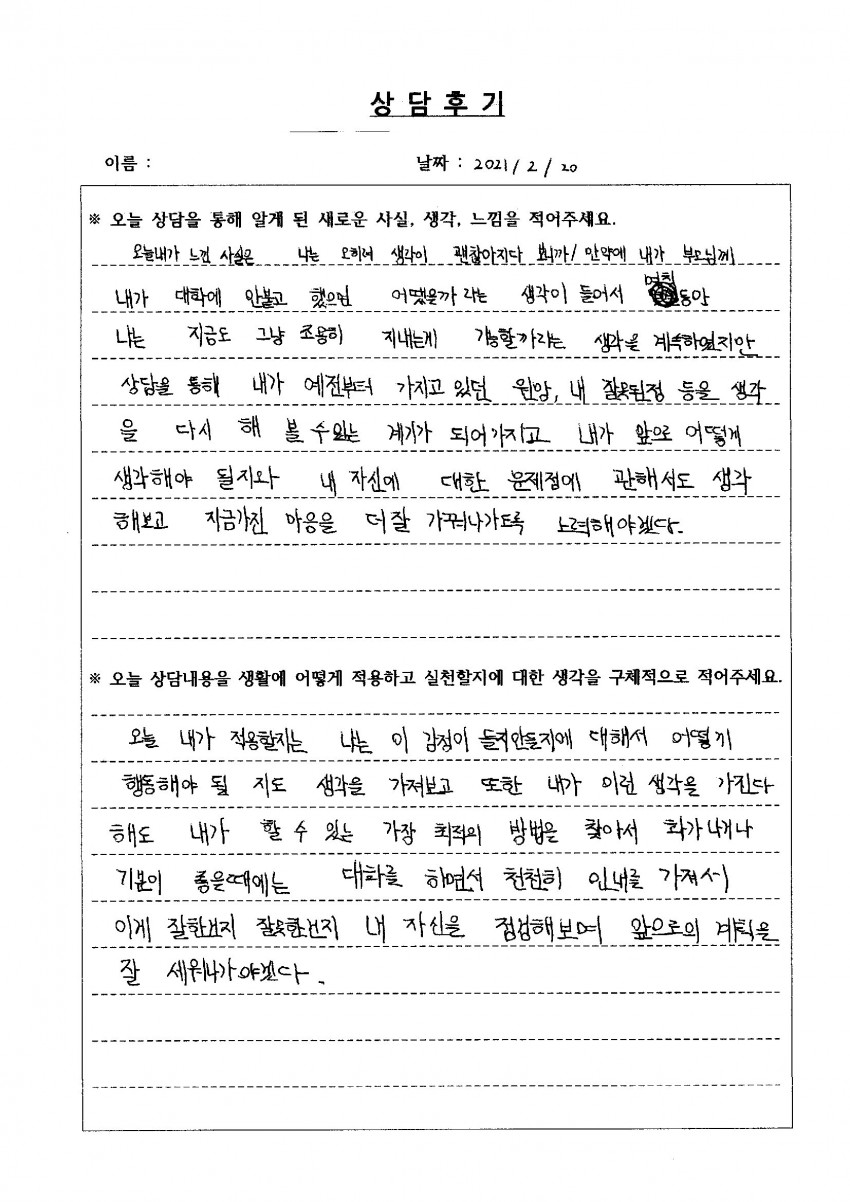 상 담 후 기
이름 : 날짜 : 2021 / 2 / 20
※ 오늘 상담을 통해 알게 된 새로운 사실, 생각, 느낌을 적어주세요.
오늘내가 느낀 사실은 나는 오히려 생각이 괜찮아지다 보니까/ 만약에 내가 부모님께
내가 대학에 안붙고 했으면 어땠을까 라는 생각이 들어서 며칠동안
나는 지금도 그냥 조용히 지내는게 가능할까라는 생각을 계속하였지만
상담을 통해 내가 예전부터 가지고 있던 원망, 내 잘못된점 등을 생각
을 다시 해 볼 수있는 계기가 되어가지고 내가 앞으로 어떻게
생각해야 될지와 내 자신에 대한 문제점에 관해서도 생각
해보고 지금가진 마음을 더 잘 가꿔나가도록 노력해야겠다.
※ 오늘 상담내용을 생활에 어떻게 적용하고 실천할지에 대한 생각을 구체적으로 적어주세요.
오늘 내가 적용할지는 나는 이 감정이 들지안들지에 대해서 어떻게
행동해야 될 지도 생각을 가져보고 또한 내가 이런 생각을 가진다
해도 내가 할 수 있는 가장 최적의 방법을 찾아서 화가나거나
기분이 좋을때에는 대화를 하면서 천천히 인내를 가져서
이게 잘한건지 잘못한건지 내 자신을 점검해보며 앞으로의 계획을
잘 세워나가야겠다.